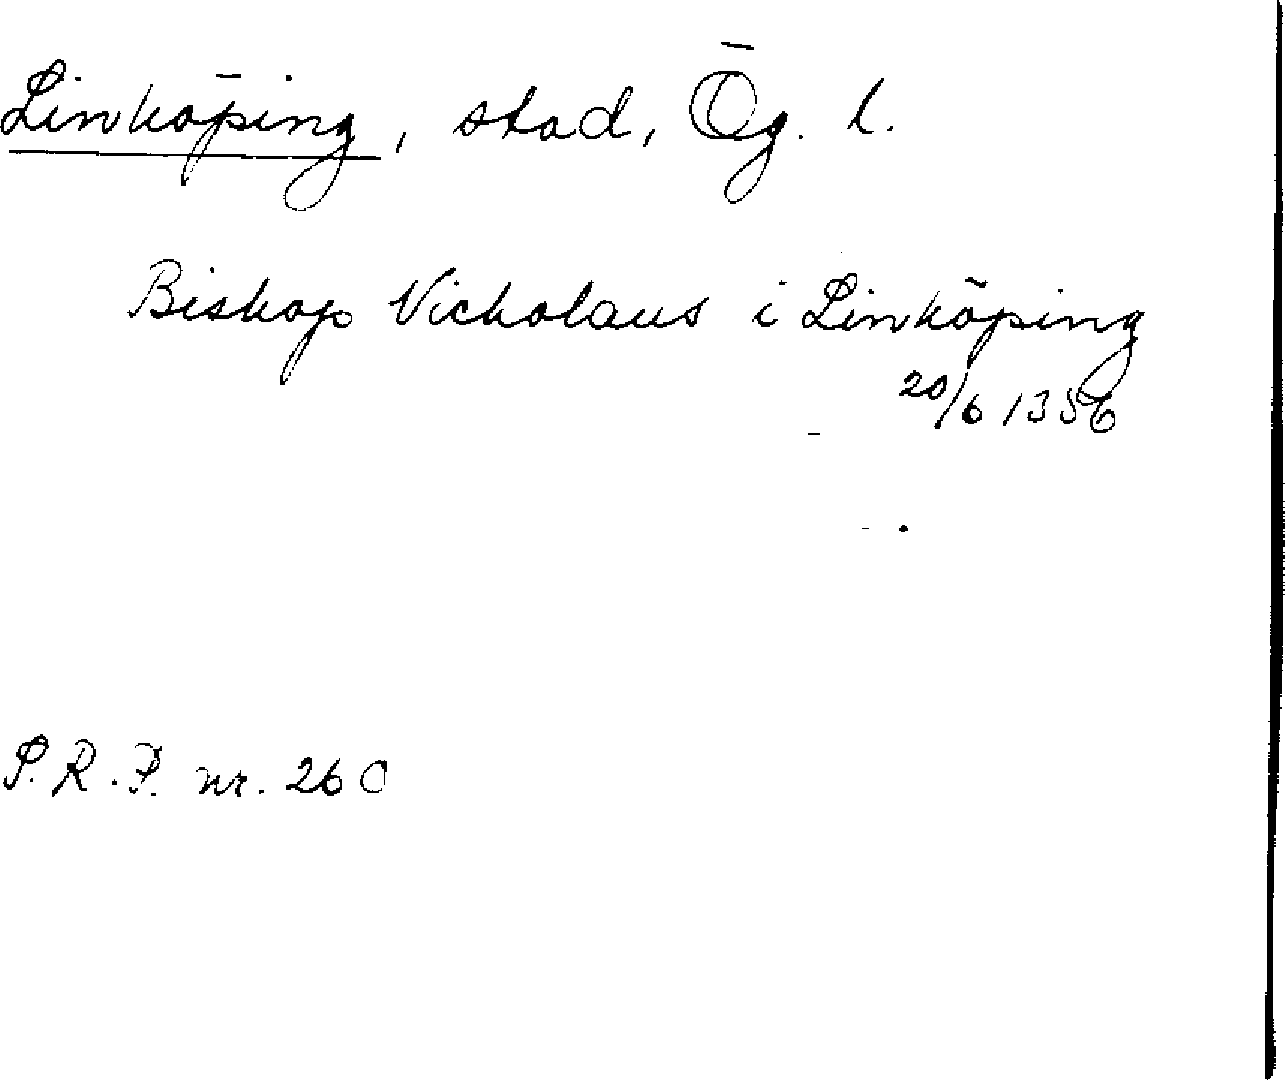 Linköping, stad, Ög. l.
Biskop Nicholaus i Linköping
20/6 1356
S.R.P. nr. 260